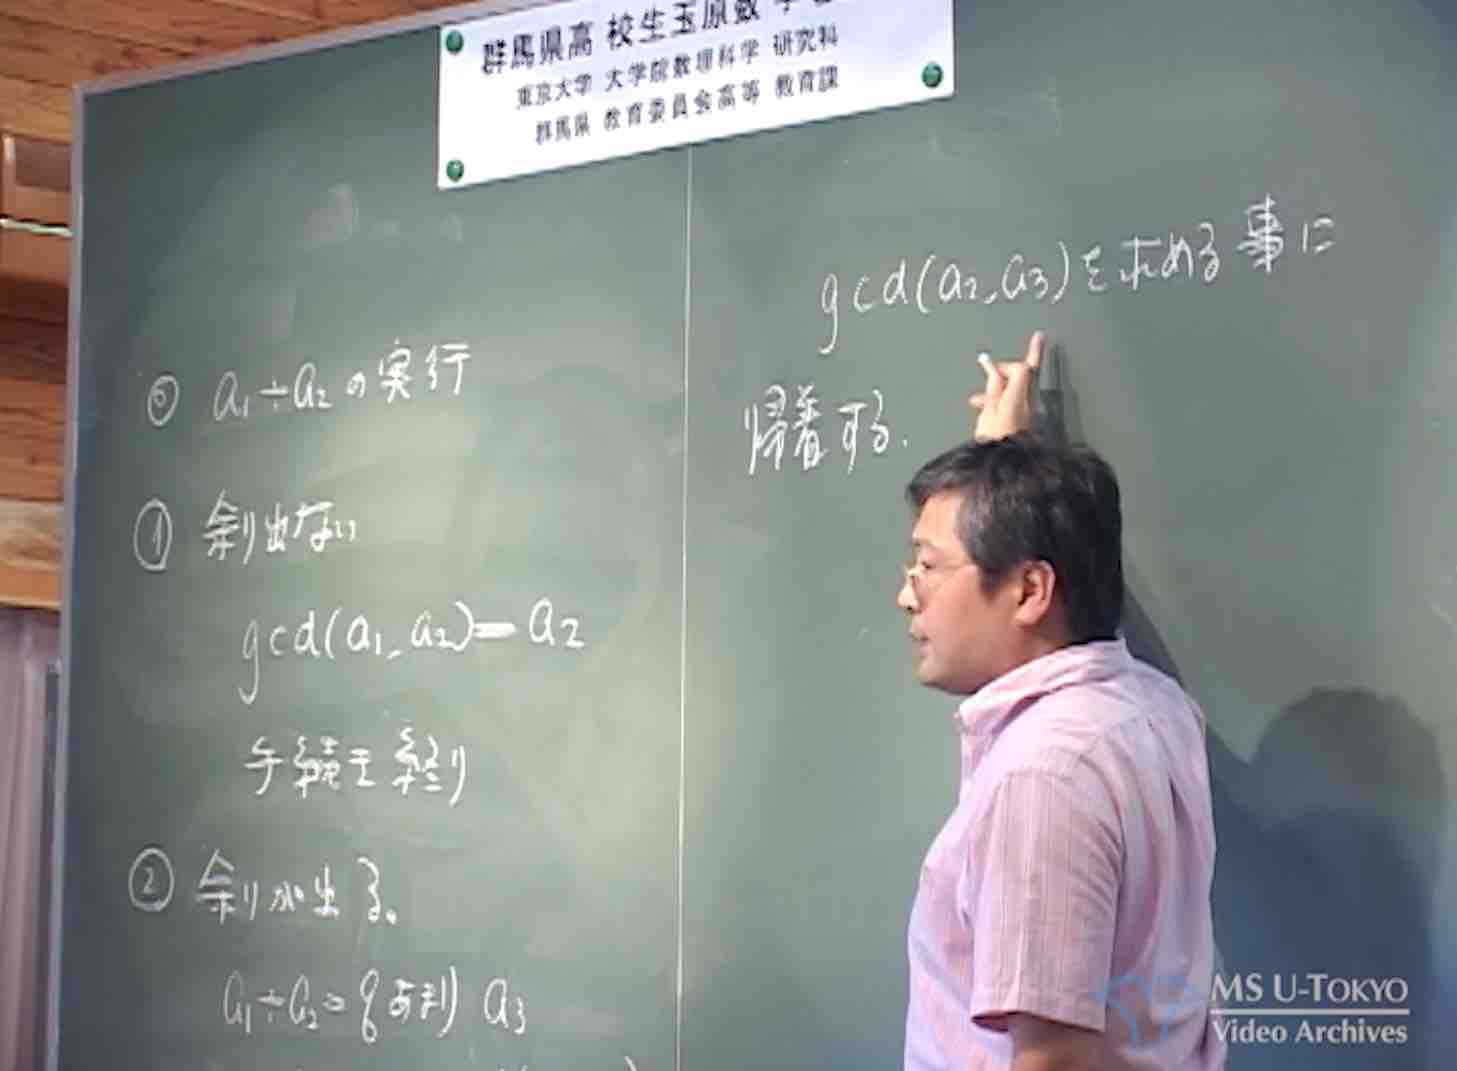 群馬県高校生玉原数学
東京大学 大学院数理科学 研究科
群馬県 教育委員会高等 教育課
⓪ a₁÷a₂の実行
① 余り出ない
gcd(a₁,a₂)=a₂
手続を終り
② 余りが出る。
a₁÷a₂=q あまり a₃
gcd(a₂,a₃)を求める事に
帰着する.
MS U-TOKYO
Video Archives